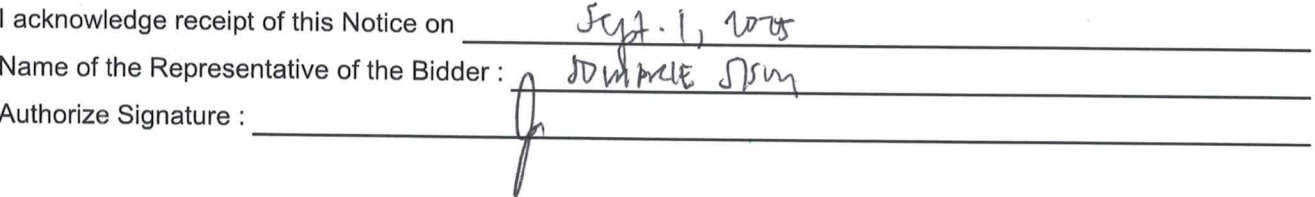 I acknowledge receipt of this Notice on Sept. 1, 2025
Name of the Representative of the Bidder :
Authorize Signature :